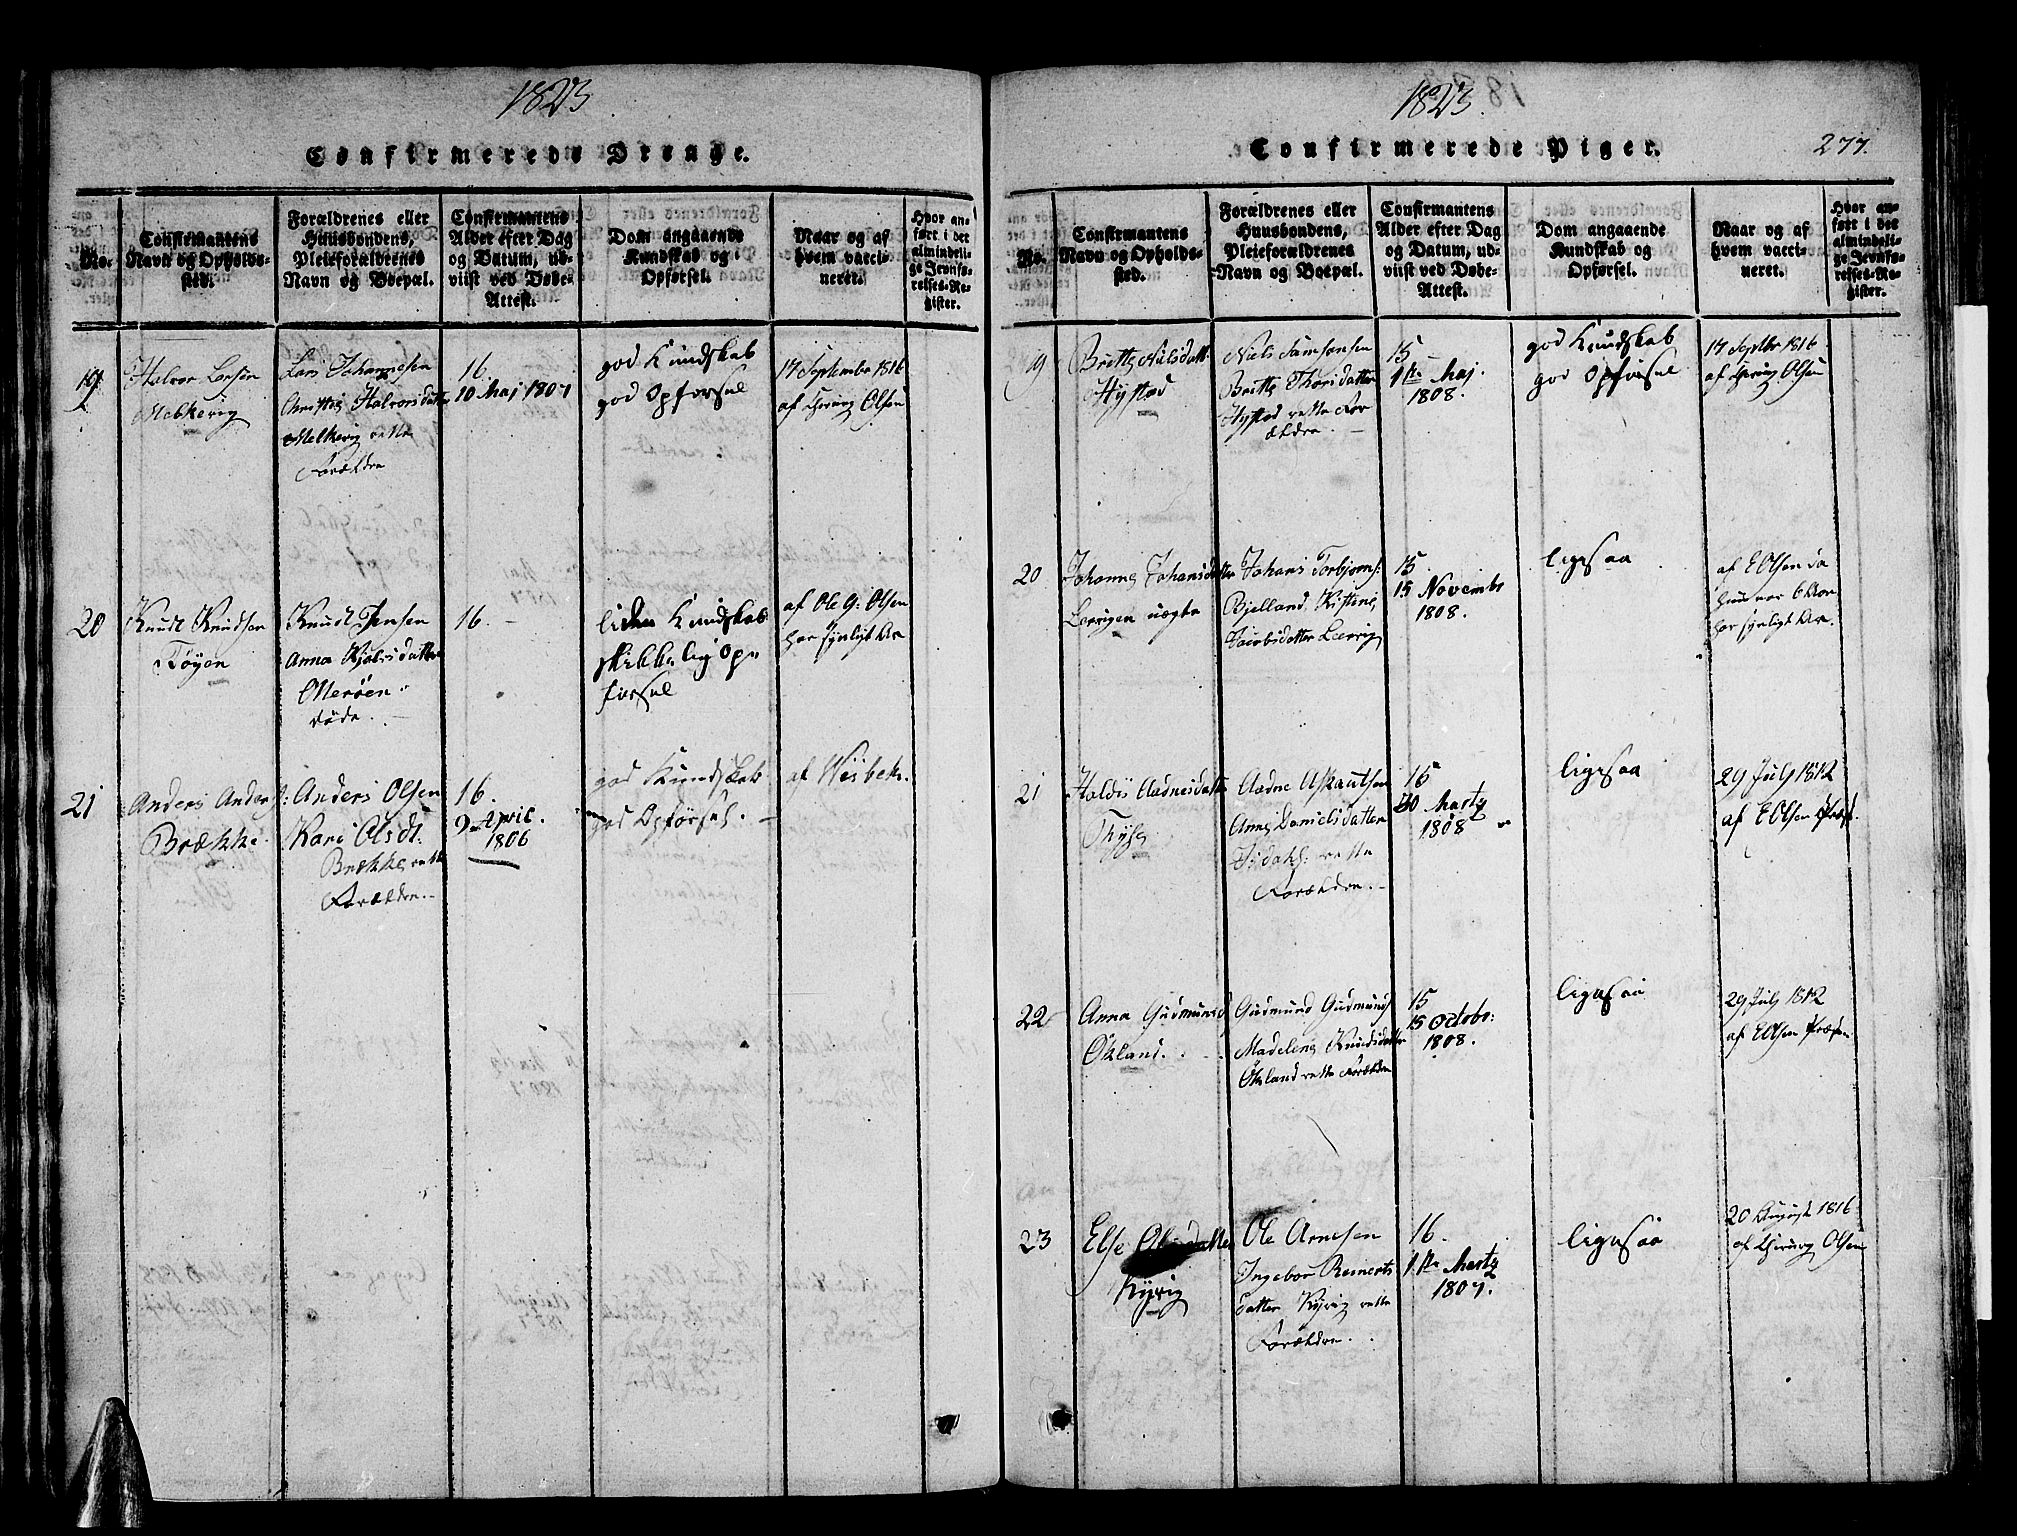 1823
Confirmerede Drenge.
No.
Confirmantens
Navn og Opholds-
sted.
Forældrenes eller
Huusbondens,
Pleieforældrenes
Navn og Boepæl.
Confirmantens
Alder efter Dag
og Datum, ud-
viist ved Døbe-
Attest.
Dom angaaende
Kundskab og
Opførsel.
Naar og af
hvem vacci-
neret.
Hvor an-
ført i det
almindeli-
ge Jevnfø-
relses-Re-
gister.
19
Halvor Larsen
Mebkevig
Lars Johannesen
Christie Halvorsdatter
Melkevig rette
Forældre
16.
10 Maj 1807
god Kundskab
god Opførsel
17 September 1816
af Chirurg Olsen
20
Knudt Knudsen
Røyen
Knudt Jensen
Anna
Otterøen
døde.
16. -
liden Kundskab
skikkelig Op-
førsel
af Ole G: Olsen
har synligt Ar
21
Anders Anders:
Brække.
Anders Olsen
Kari Olsdt.
Brække rette
Forældre.
16.
9 April.
1806
god Kundskab
god Opførsel. -
af Weibek.
1823.
Confirmerede Piger.
277.
No.
Confirmantens
Navn og Opholds-
sted.
Forældrenes eller
Huusbondens,
Pleieforældrenes
Navn og Boepæl.
Confirmantens
Alder efter Dag
og Datum, ud-
viist ved Døbe-
Attest.
Dom angaaende
Kundskab og
Opførsel.
Naar og af
hvem vacci-
neret.
Hvor an-
ført i det
almindeli-
ge Jevnfø-
relses-Re-
gister.
19
Britte Nilsdatt:
Hystad
Niels Samsonsen
Britte Thorsdatter
Hystad rette For-
ældre. -
15
1ste Maj.
1808.
god Kundskab
god Opførsel
17 Septbr 1816
af Chirurg Olsen
20
Johanne Johansdatter
Leervigen uægte
Johans Torbjørns:
Bjelland, Kistene
Jacobsdatter Leervig
15
15 Novembr
1808.
ligesaa
af E Olsen da
hun var 6 Aar
har synligt Ar.
21
Haldis Aadnesdatt:
Thyse
Aadne Askautsen
Anne Danielsdatter
rette
Forældre. -
15
20 Martz
1808
ligesaa
29 July 1812
af E Olsen Præst.
22
Anna Gudmunsd
Økland.
Gudmund Gudmunds
Madeline Knudsdatter
Økland rette Forældre
15
15 Octobr:
1808.
ligesaa
29 July 1812
af E Olsen
23
Else Olsdatter
Kyvig
Ole Arnesen
Ingebor Reinerts
datter Kyvig rette
Forældre.
16.
1ste Martz
1807.
ligesaa
20 August 1816
af Chirurg Olsen